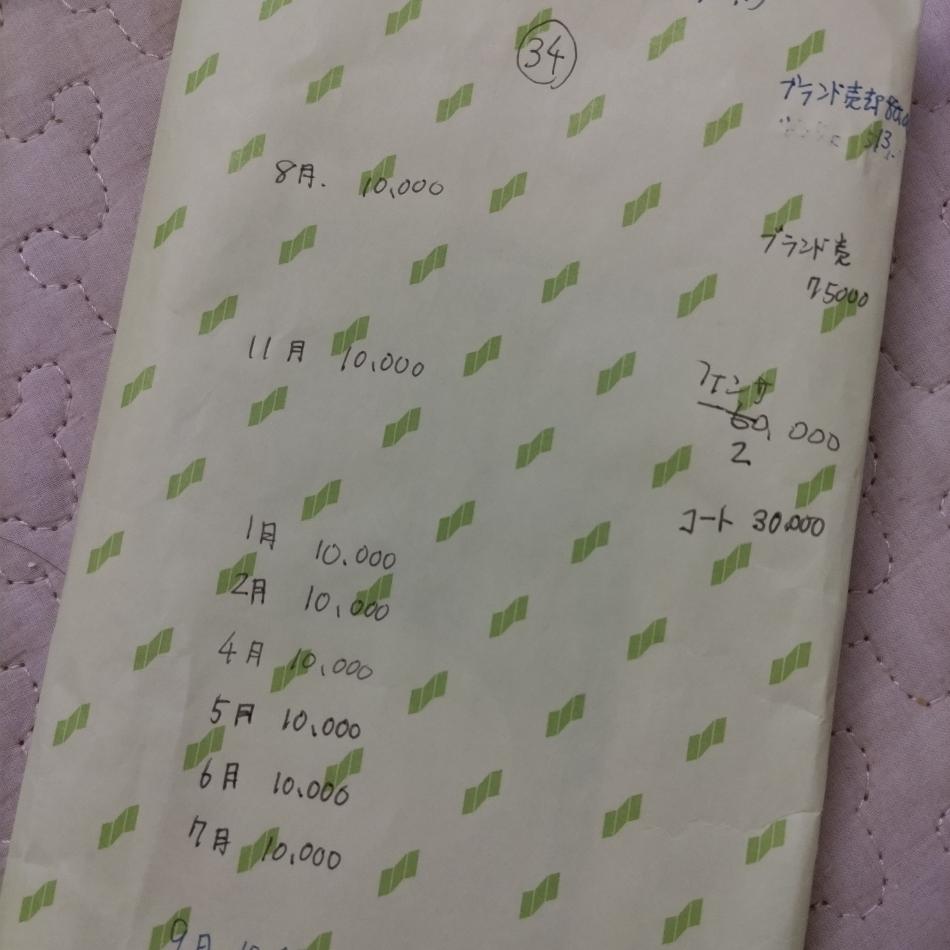 34
ブランド売却
8月. 10,000
ブランド売
75000
11月 10,000
フェンサ
60,000
2
コート 30.000
1月 10.000
2月 10,000
4月 10,000
5月 10,000
6月 10,000
7月 10,000
9月